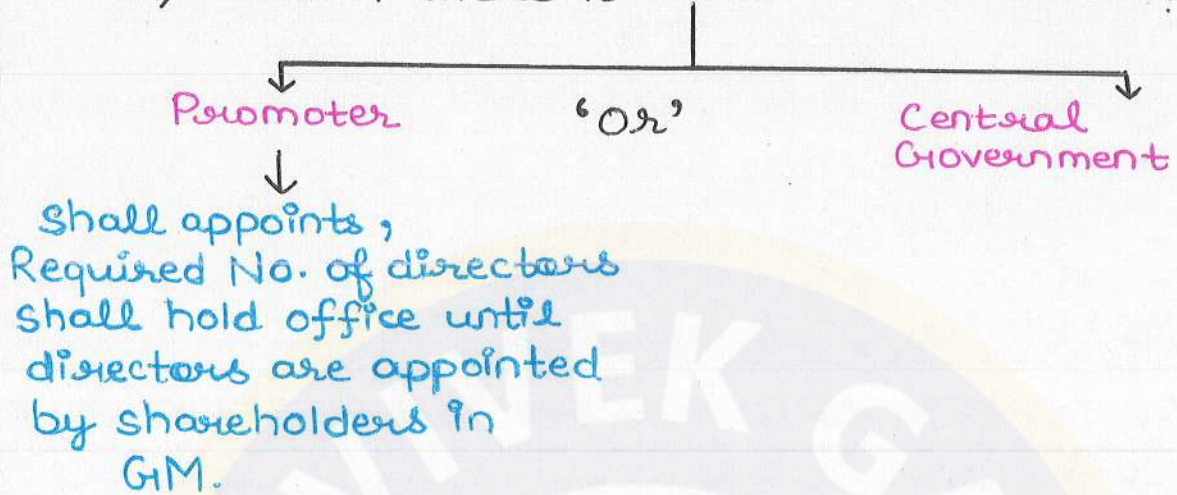 Promoter 'Or' Central
Government
Shall appoints,
Required No. of directors
shall hold office until
directors are appointed
by shareholders in
GM.
VIVEK G